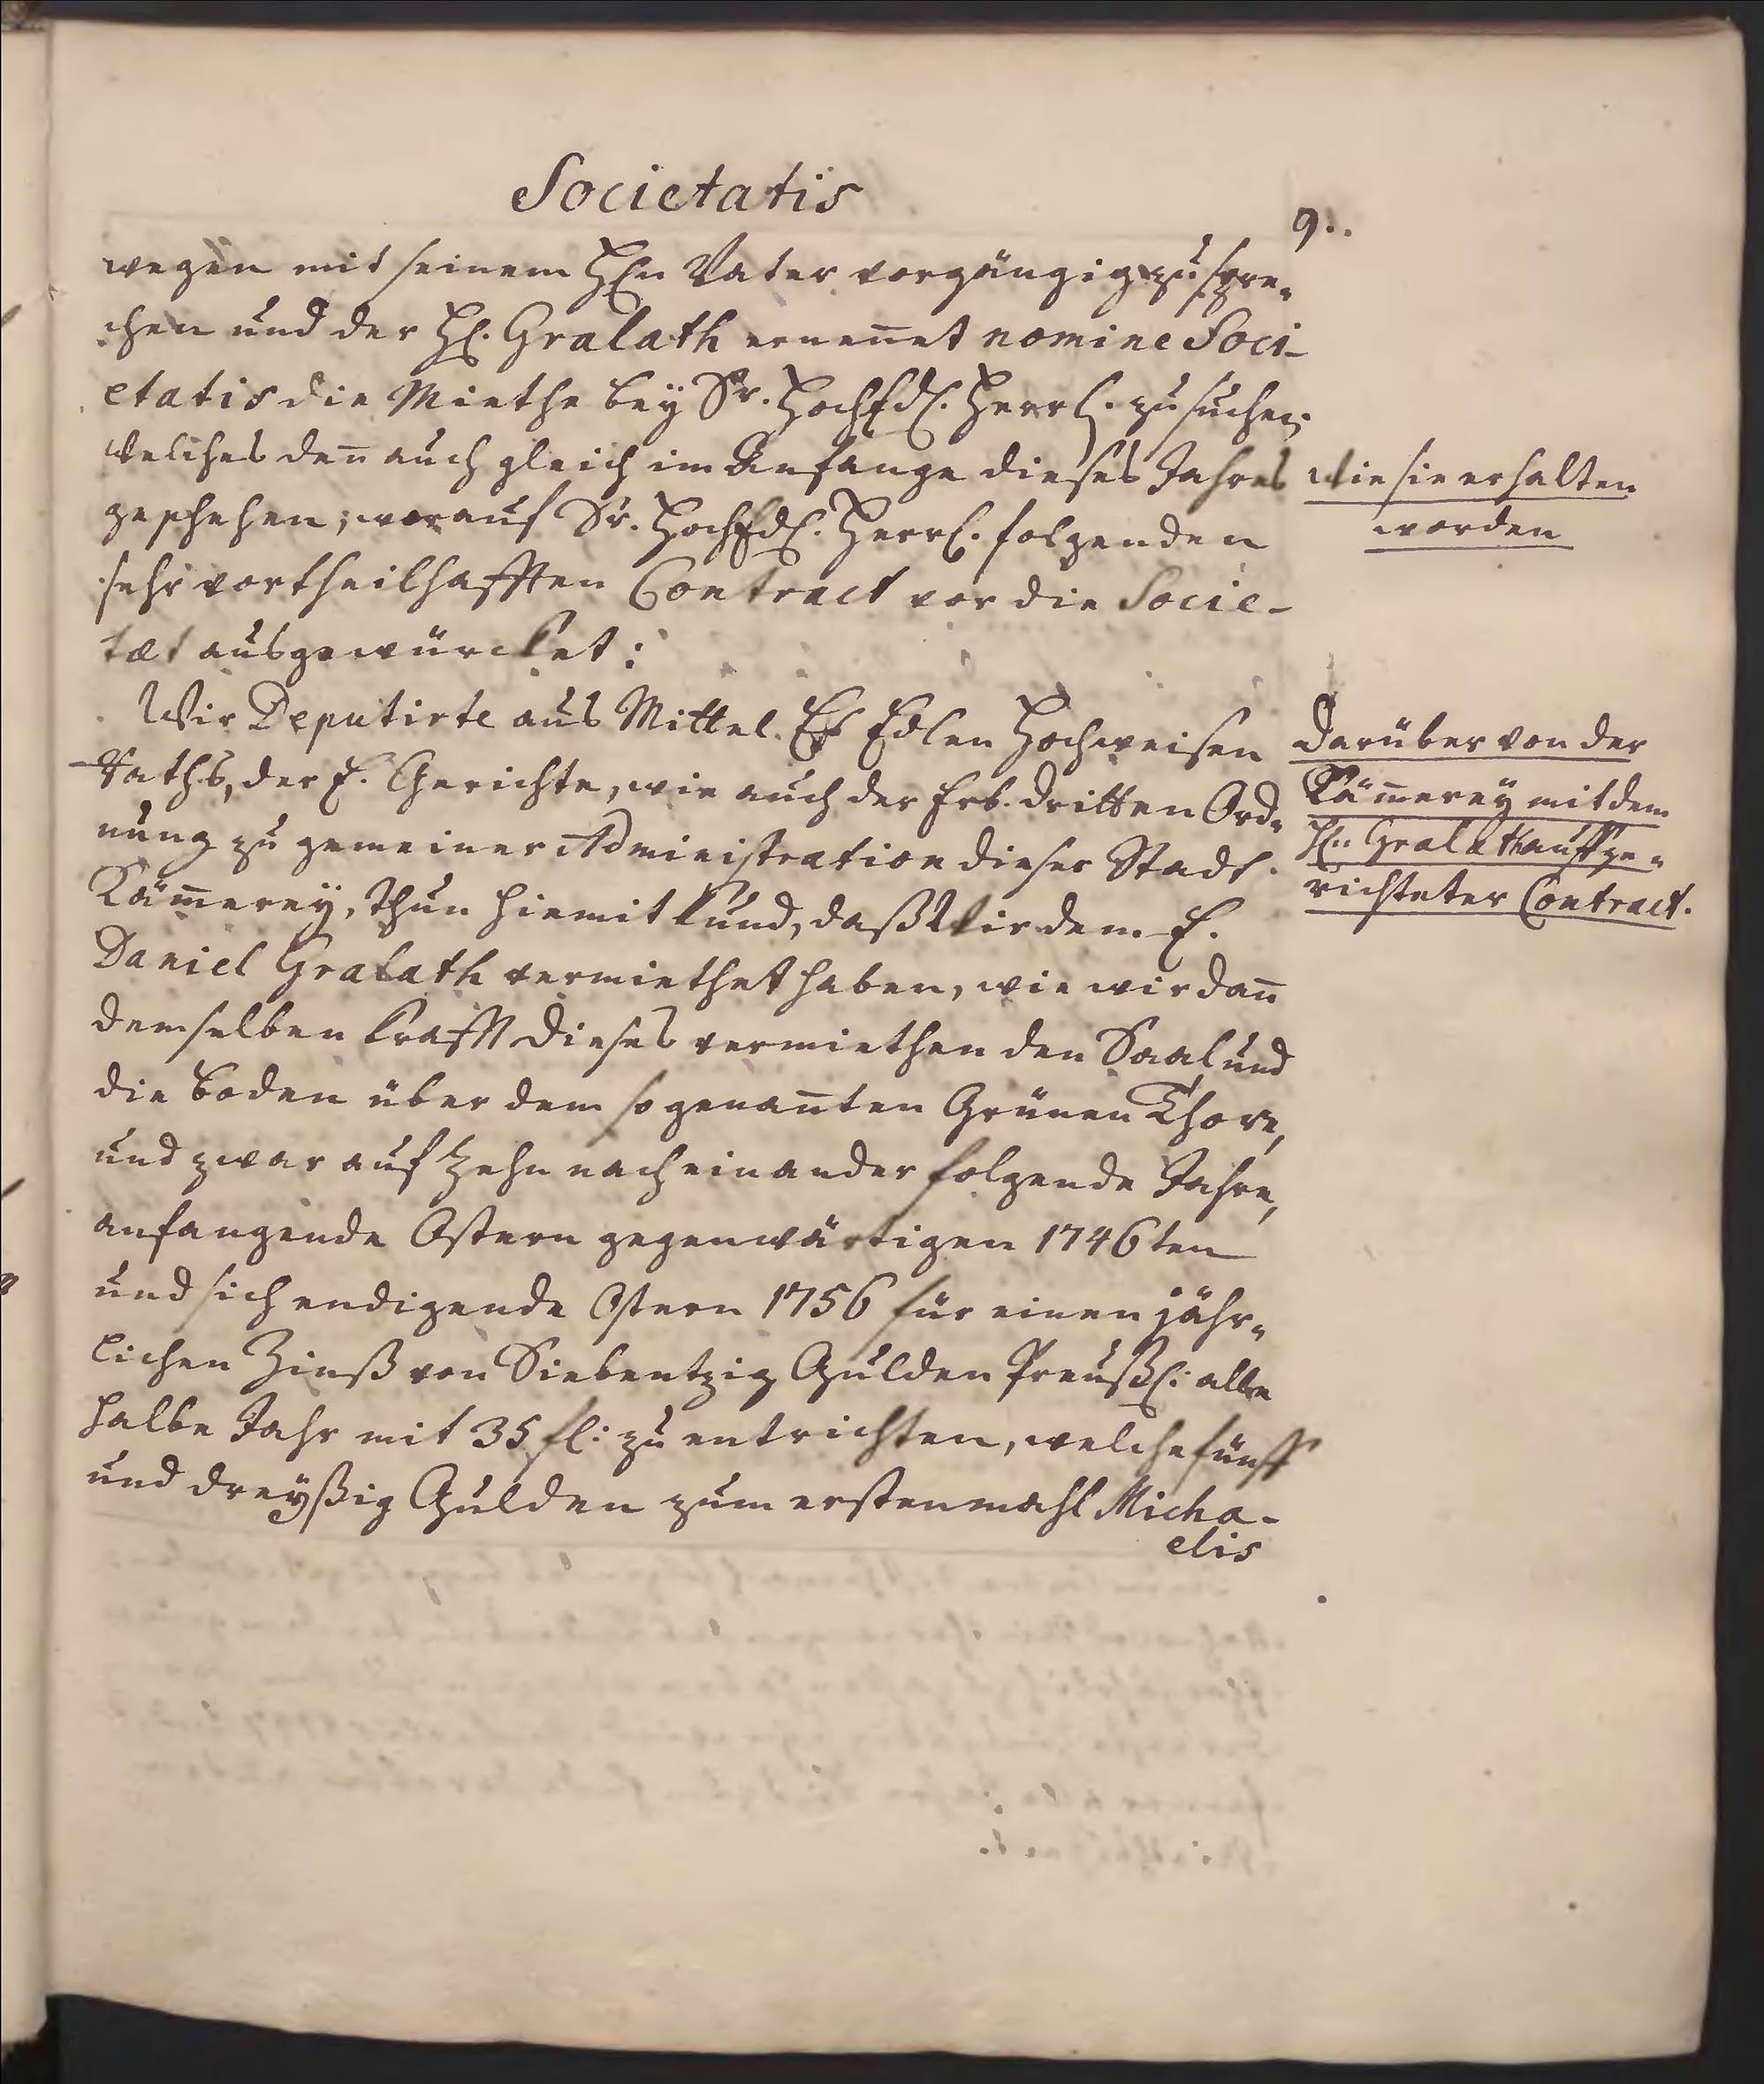 Societatis
9..
wegen mit seinem HEn Vater vorgängig zu spre-
chen und der HE. Gralath ernen̄et nomine Soci-
etatis die Miethe bey Sr. HochEdl. Herrl. zu suchen;
Welches den̄ auch gleich im Anfange dieses Jahres
geschehen; worauf Sr. HochEdl. Herrl. folgenden
sehr vortheilhafften Contract vor die Socie-
tæt ausgewürcket:
Wir Deputirte aus Mittel Es Edlen Hochweisen
Raths, der E. Gerichte, wie auch der Erb. dritten Ord-
nung zu gemeiner Administration dieser Stadt
Käm̄erey, thun hiemit kund, daß Wir dem E.
Daniel Gralath vermiethet haben, wie wir dan̄
demselben krafft dieses vermiethen den Saal und
die Boden über dem so genan̄ten Grünen Thore,
und zwar auf Zehn nach einander folgende Jahre,
anfangende Ostern gegenwärtigen 1746ten
und sich endigende Ostern 1756 für einen jähr-
lichen Zinß von Siebentzig Gulden Preußl: alle
halbe Jahr mit 35 fl: zu entrichten, welche fünff
und dreyßig Gulden zum erstenmahl Micha-
elis
Wie sie erhalten
worden
Darüber von der
Käm̄erey mit dem
HEn Gralath auffge-
richteter Contract.